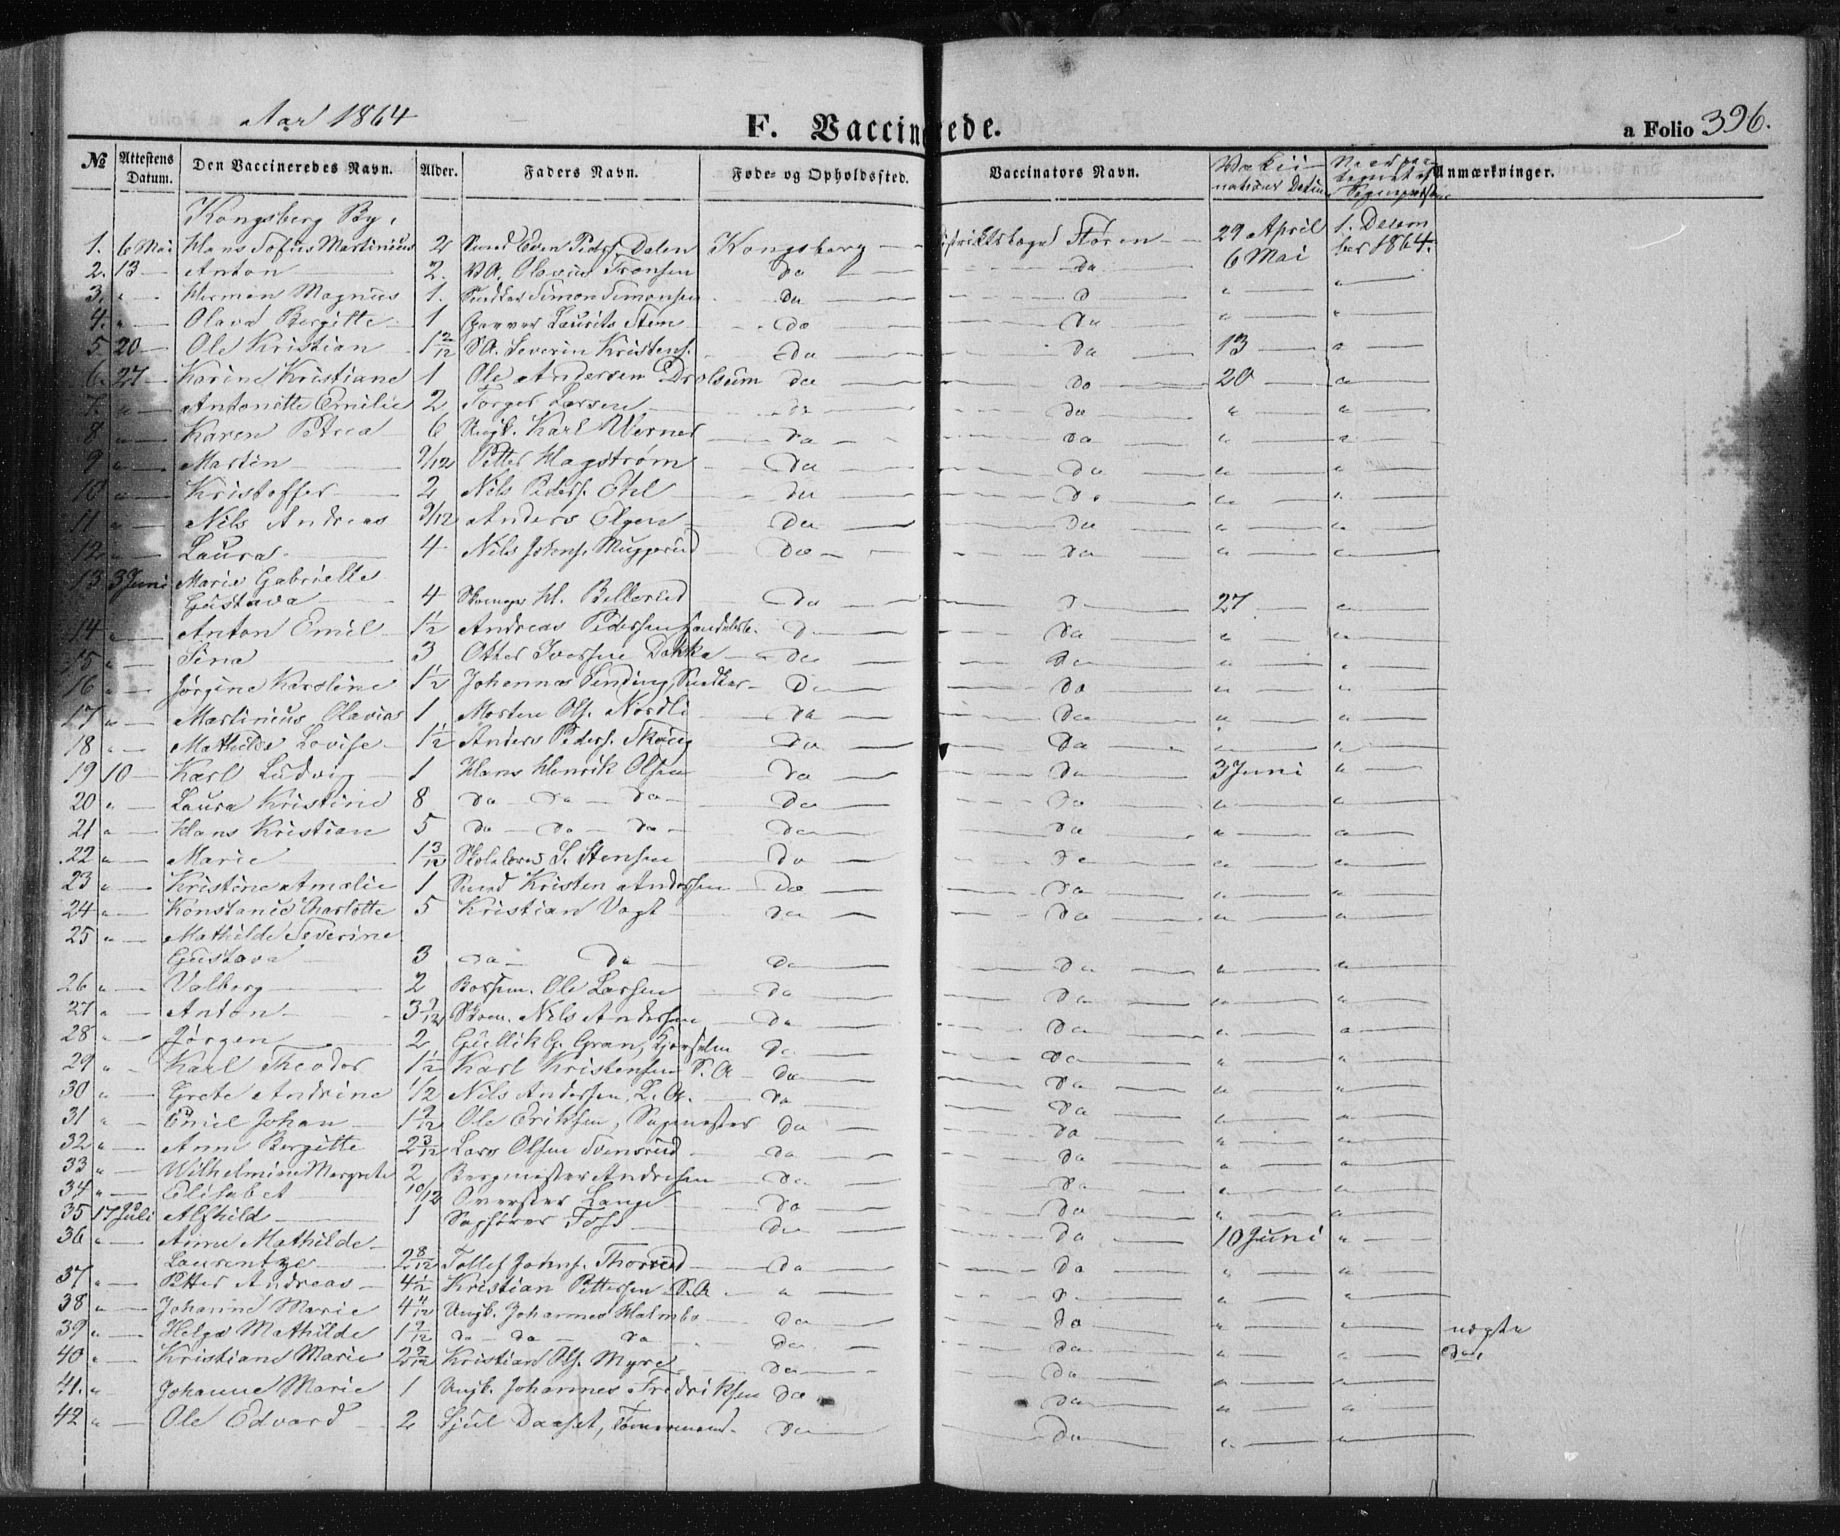 Aar 1864
F. Vaccinerede.
a Folio 396.
№ Attestens Datum. Den Vaccineredes Navn. Alder. Faders Navn. Føde- og Opholdssted. Vaccinators Navn. Datum Anmærkninger.
Kongsberg By.
1. 6 Mai Hans Tofius Martinius 2 Even Peders. Dalen Kongsberg Støren 29 April 1. Decem
ber 1864.
2. 13 — Anton 2. Olavius Tronsen Do Do 6 Mai "
3. " Herman Magnus 1. Simon Simonsen Do D " "
4. " Olava Bergitte 1 Garver Laurits Do Do " "
5. 20 — Ole Kristian 1 2/12 S.A. Severin Kristens. Do Do 13 "
6. 27 — Karine Kristiane 1 Ole Andersen Drolsum Do Do 20 "
7. " Antonette Emilie 2 Torger Larsen Do Do " "
8 " Karen Petrea 6 Ungk. Karl Werner Do Do " "
9 " Martin 9/12 Petter Hagstrøm Do Do " "
10 " Kristoffer 2 Nils Peders. Do Do " "
11 " Nils Andreas 9/12 Anders Elgen Do Do " "
12 " Laura 4 Nils Johns. Muggerud Do Do " "
13 3 Juni Marie Gabrielle
Gustava 4 H. Bellerud Do D 27 "
14 " Anton Emil 1/2 Andreas Pedersen Handelsb. D Do " "
15 " Sina 3 Otter Iversen Dokka Do Do " "
16 " Jørgine Karoline 1 1/2 Johannes Do Do " "
17 " Martinius Olavias 1 Morten Ols. Nordli Do Do " "
18 " Mathilde Lovise 1 1/2 Anders Peders. Skoug Do Do " "
19 10 — Karl Ludvig 1 Hans Henrik Olsen Do Do 3 Juni "
20 " Laura Kristine 8 Do — Do — Do Do Do " "
21 " Hans Kristian 5 Do — Do — Do Do Do " "
22 " Marie 1 3/12 Skolelærer S. Stensen Do Do " "
23 " Kristine Amalie 1 Kristen Anderssen Do Do " "
24 " Konstance Charlotte 5 Kristian Vogt Do Do " "
25 " Mathilde Severine
Gustava 3 Do — Do Do Do " "
26 " Valborg 2 Ole Larsen Do Do " "
27 " Anton 3 9/12 Skom. Nils Anderssen Do Do " "
28 " Jørgen 2 Gullik G. Gran, Do Do " "
29 " Karl Theodor 1 1/2 Karl Kristensen S.A Do Do " "
30 " Grete Andrine 1/2 Nils Anderssen, L.A. Do Do " "
31 " Emil Johan 1 9/12 Ole Eriksen, Sagmester Do Do " "
32 " Anne Bergitte 2 3/12 Lars Olsen Svensrud Do Do " "
33 " Wilhelmine Margrete 2 Bergmester Andresen Do Do " "
34 " Elisabet 10/12 Overster Lange Do Do " "
35 17 Juli Alfhild 1 Sagfører Foss Do Do 10 Juni "
36 " Anne Mathilde
Laurentze 2 8/12 Tollef Johns. Thorrud Do Do " "
37 " Petter Andreas 4 1/2 Kristian Pettersen S.A " D " "
38 " Johanne Marie 4 4/12 Ungk. Johannes Halmbo Do Do " "
39 " Helga Mathilde 1 9/12 Do — Do — Do Do Do " " uægte
40 " Kristiane Marie 2 9/12 Kristian Ols. Myre Do Do " " Do.
41. " Johanne Marie 1 Ungk. Johannes Fredriksen Do Do " "
42 " Ole Edvard 2 Sjul Daaset, Tømmermand. Do Do " "